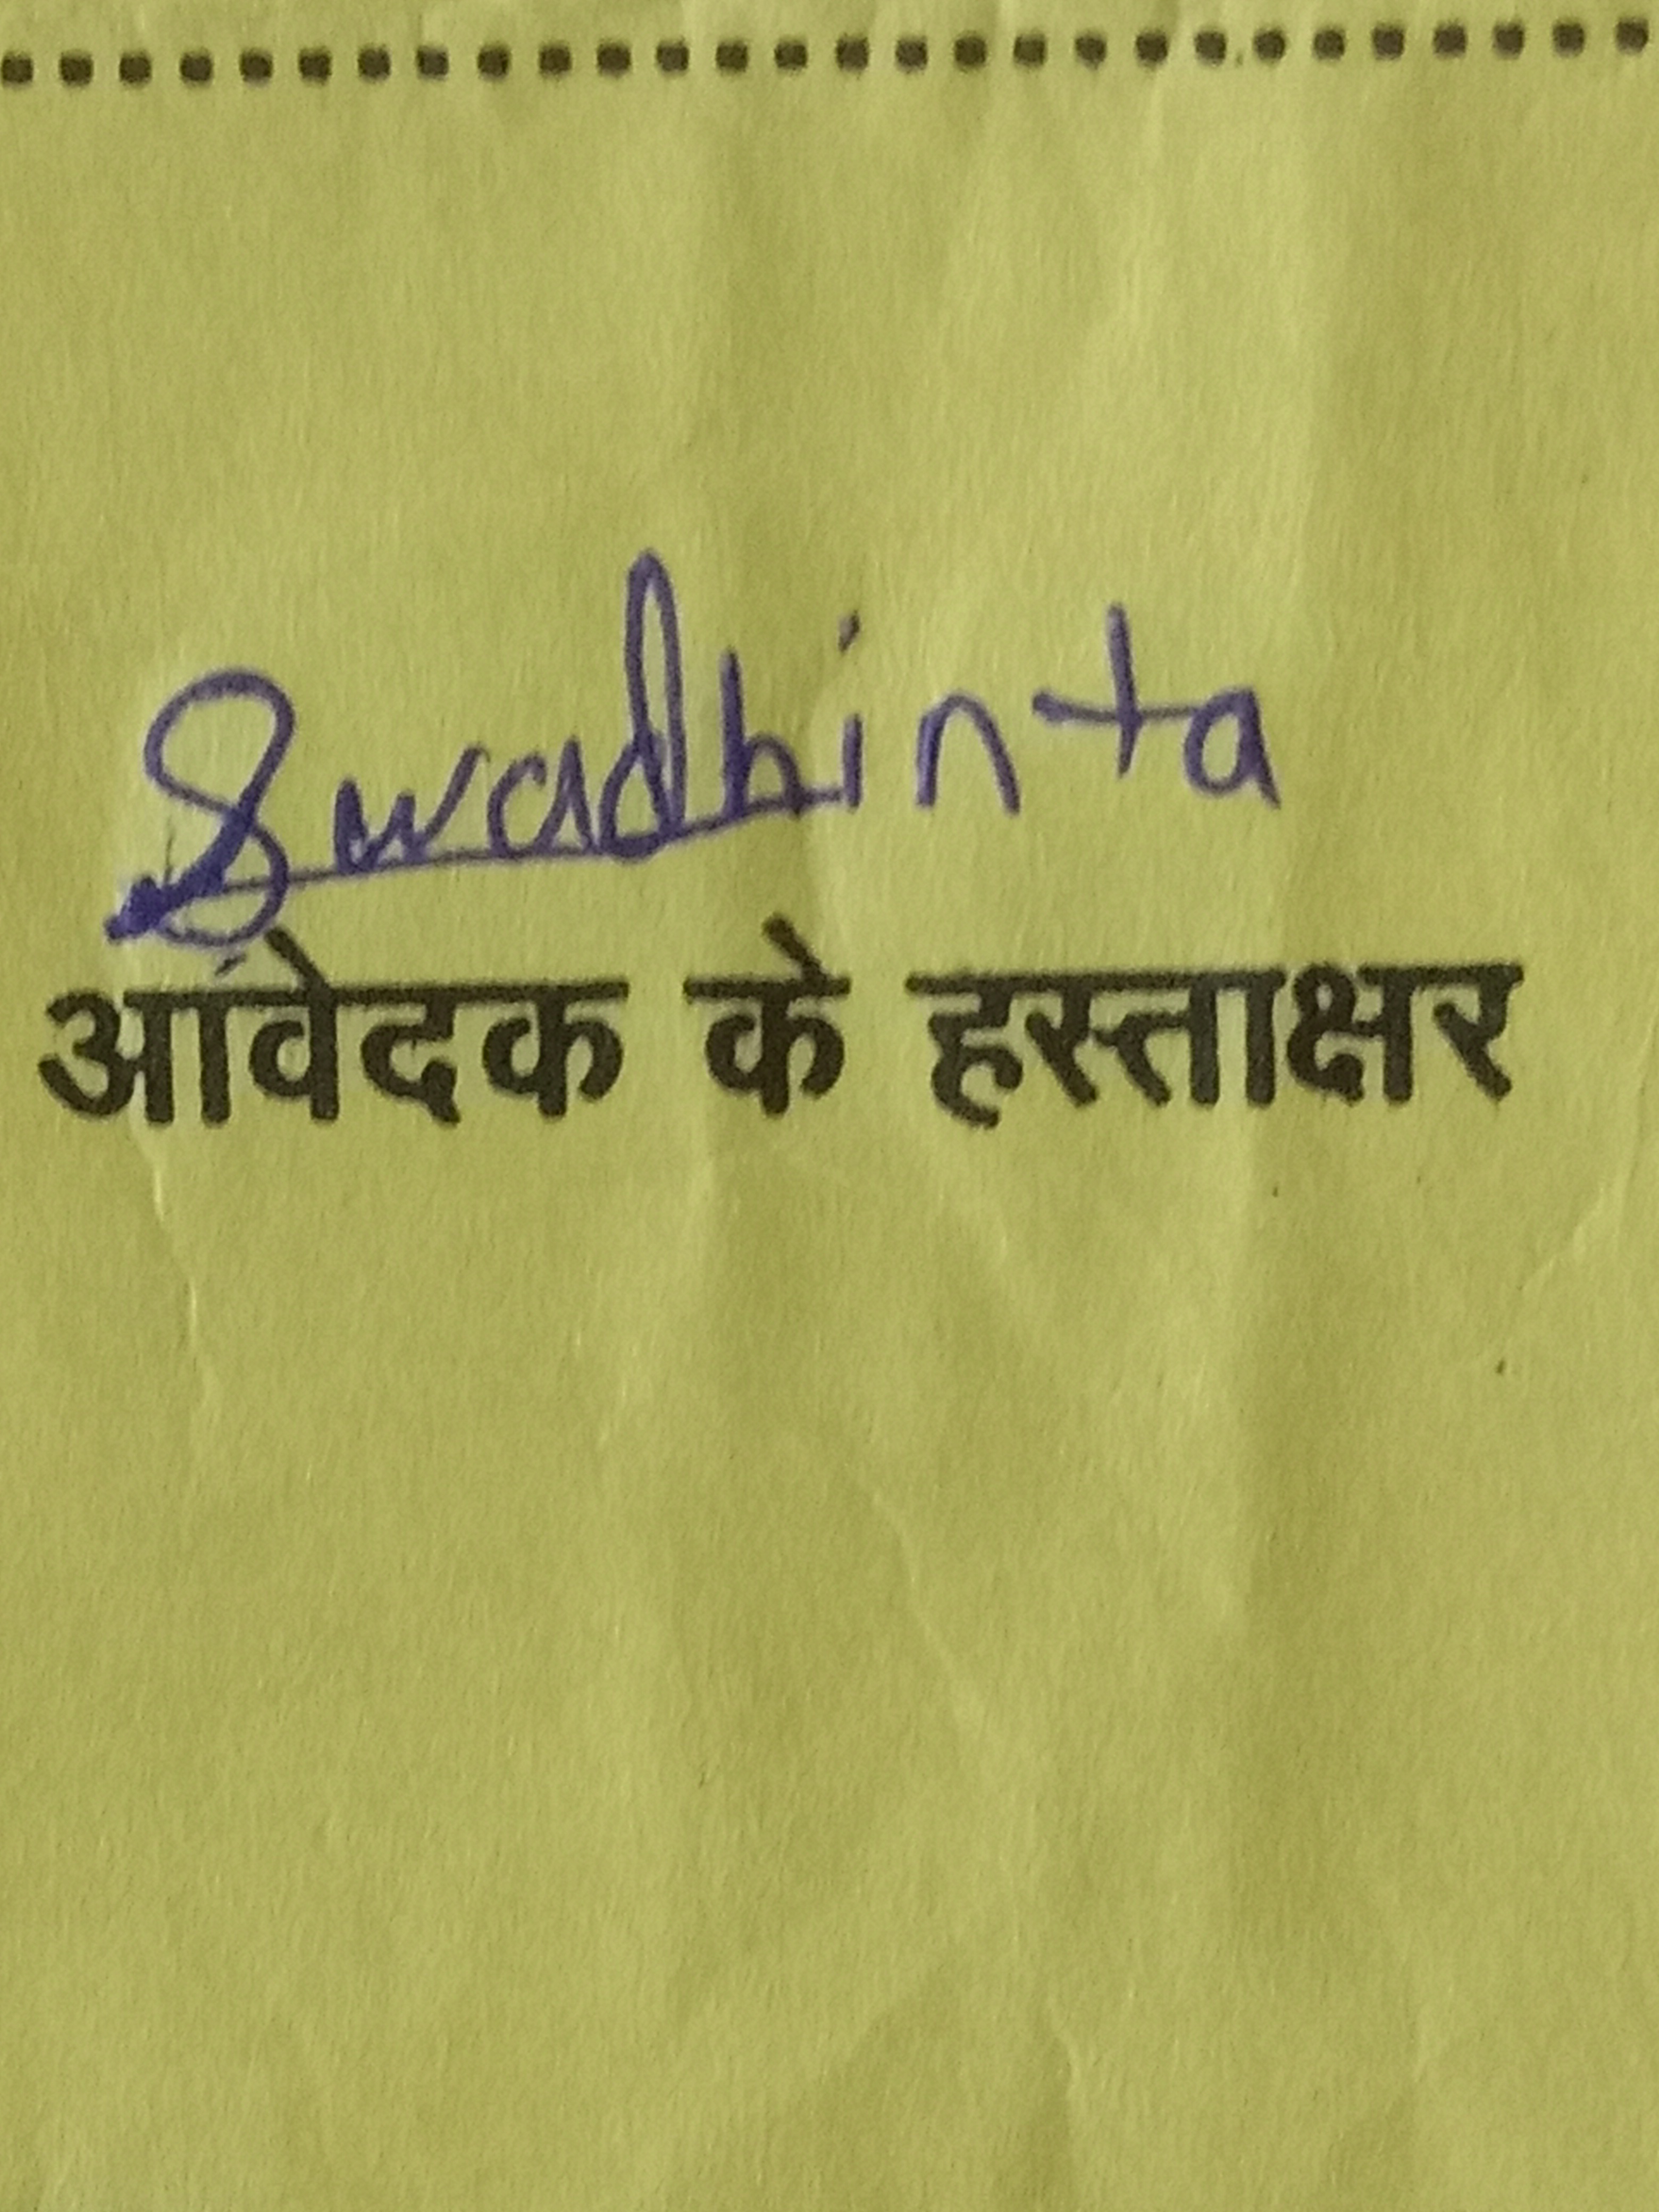 Swadhinta
आवेदक के हस्ताक्षर